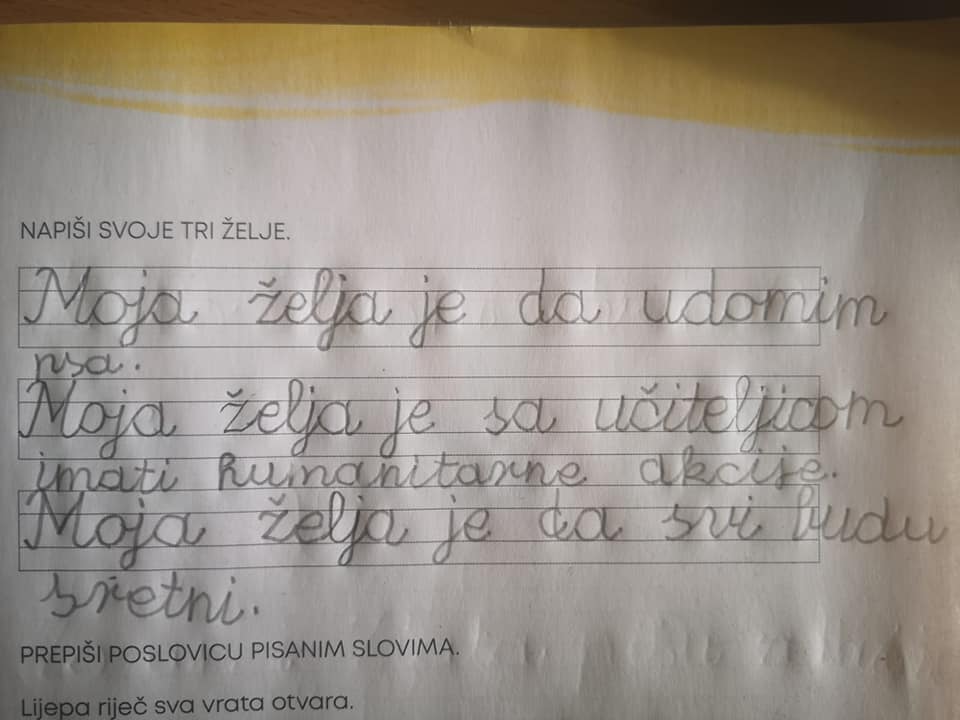 NAPIŠI SVOJE TRI ŽELJE.
Moja želja je da udomim
psa.
Moja želja je sa učiteljicom
imati humanitarne akcije.
Moja želja je da svi budu
sretni.
PREPIŠI POSLOVICU PISANIM SLOVIMA.
Lijepa riječ sva vrata otvara.